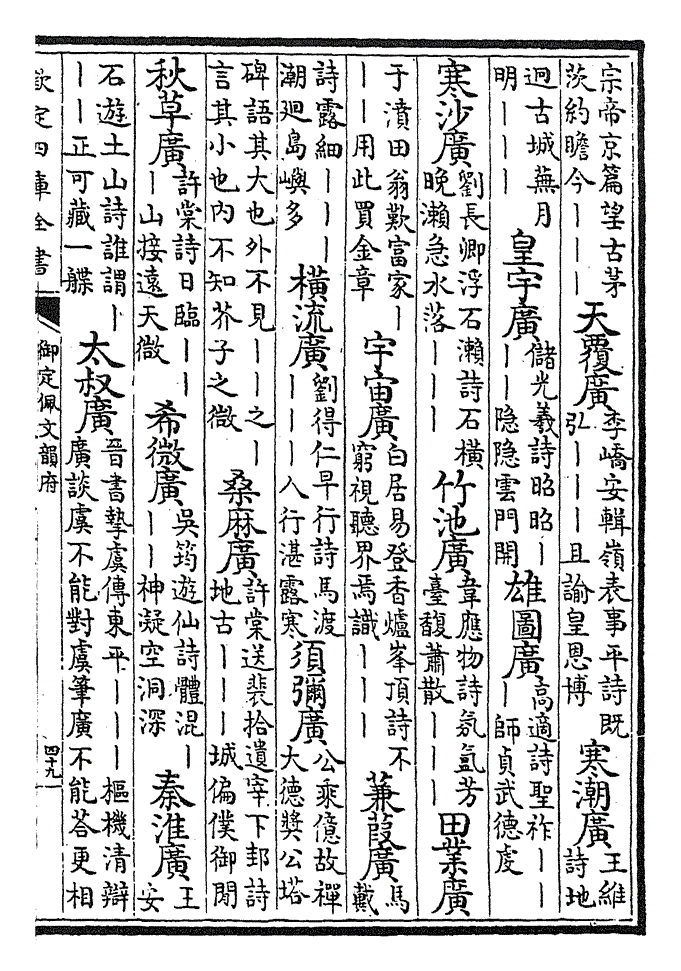 宗帝京篇望古茅茨約瞻今｜｜｜天覆廣李嶠安輯嶺表事平詩既弘｜｜｜且諭皇恩博寒潮廣王維詩地
迥古城蕪月明｜｜｜皇宇廣儲光羲詩昭昭｜｜｜隱隱雲門開雄圖廣高適詩聖祚｜｜｜師貞武德虔
寒沙廣劉長卿浮石瀨詩石橫晚瀨急水落｜｜｜竹池廣韋應物詩氛氳芳臺馥蕭散｜｜｜田業廣
于濆田翁歎富家｜｜｜用此買金章宇宙廣白居易登香爐峯頂詩不窮視聽界焉識｜｜｜蒹葭廣馬戴
詩露細｜｜｜潮廻島嶼多橫流廣劉得仁早行詩馬渡｜｜｜人行湛露寒須彌廣公乘億故禪大德獎公塔
碑語其大也外不見｜｜之｜言其小也内不知芥子之微桑麻廣許棠送裴拾遺宰下邽詩地古｜｜｜城偏僕御閒
秋草廣許棠詩日臨｜｜｜山接遠天微希微廣吳筠遊仙詩體混｜｜｜神凝空洞深秦淮廣王安
石遊土山詩誰謂｜｜｜正可藏一艓太叔廣晉書摯虞傳東平｜｜｜樞機清辯廣談虞不能對虞筆廣不能荅更相
欽定四庫全書
御定佩文韻府
四十九